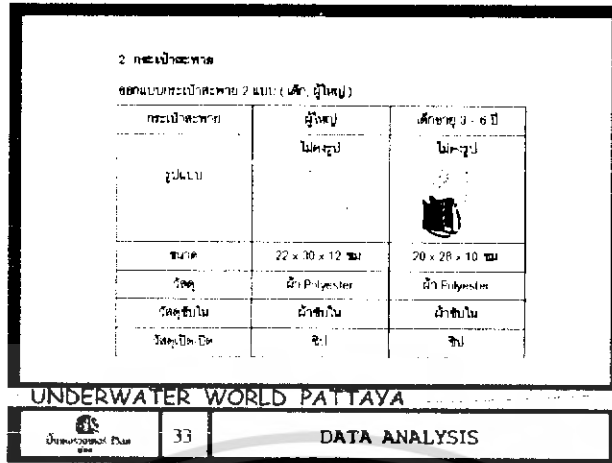 2 กระเป๋าสะพาย
ออกแบบกระเป๋าสะพาย 2 แบบ ( เด็ก, ผู้ใหญ่ )
กระเป๋าสะพาย ผู้ใหญ่ เด็กอายุ 3 - 6 ปี
รูปแบบ ไม่คงรูป ไม่คงรูป
ขนาด 22 x 30 x 12 ซม 20 x 28 x 10 ซม
วัสดุ ผ้า Polyester ผ้า Polyester
วัสดุซับใน ผ้าซับใน ผ้าซับใน
วัสดุเปิด-ปิด ซิป ซิป
UNDERWATER WORLD PATTAYA
33 DATA ANALYSIS